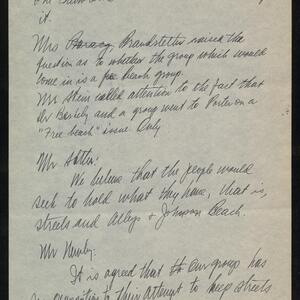 it.
Mrs Brandstetter raised the
question as to whether the group which would
come in is a free beach group.
Mr Stein called attention to the fact that
Mr Barsely and a group went to Porter on a
"Free beach" issue only
Mr
We believe that the people would
seek to hold what they have, that is,
streets and Alleys & Johnson Beach.
Mr
It is agreed that our group has
opposition to their attempt to keep streets